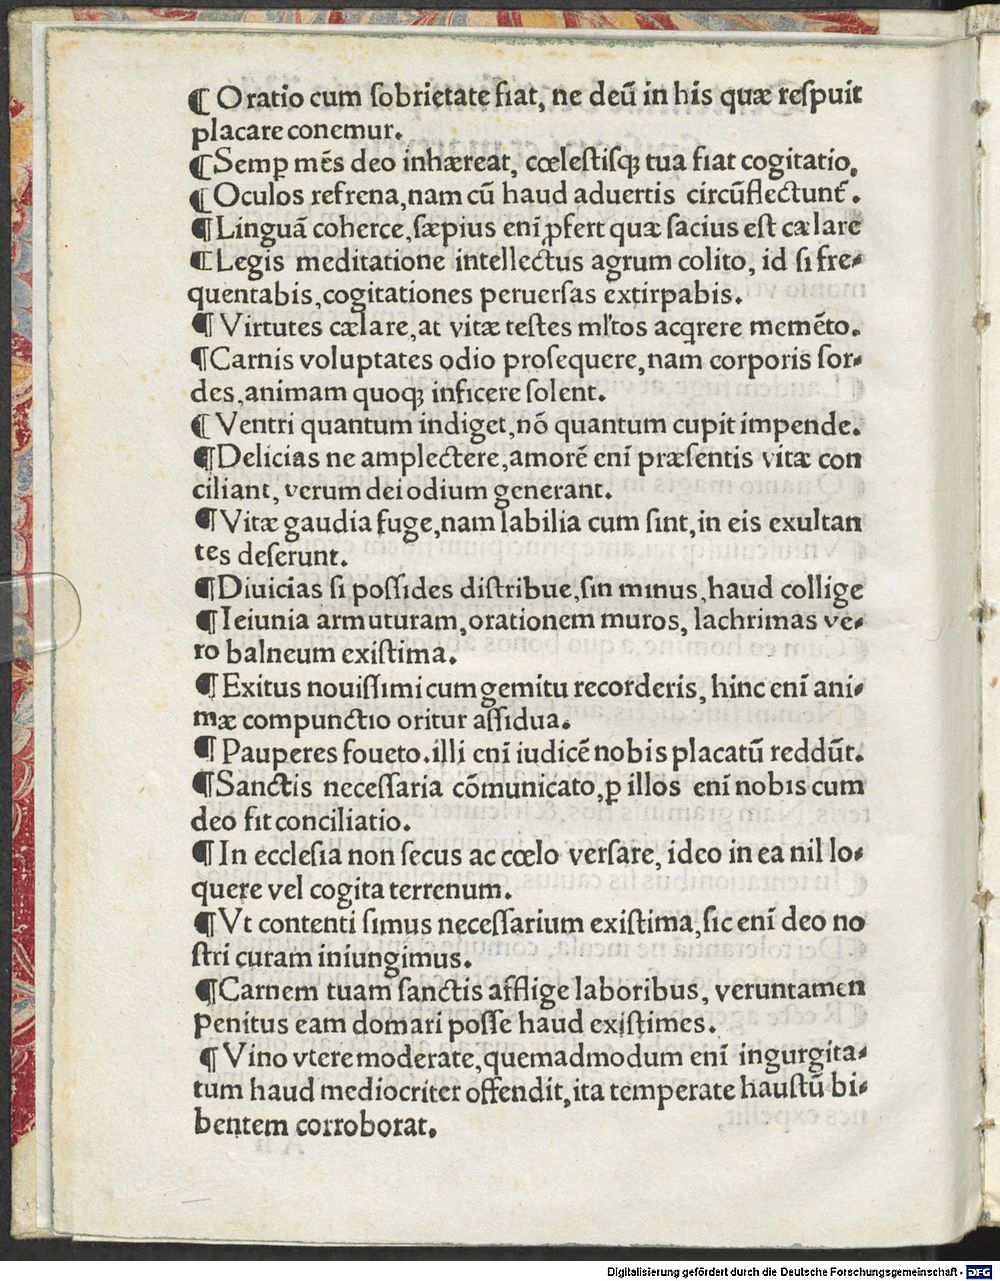 ¶ Oratio cum ſobrietate fiat, ne deū in his quæ reſpuit
placare conemur.
¶ Semꝑ mēs deo inhæreat, cœleſtiſqꝫ tua fiat cogitatio.
¶ Oculos refrena, nam cū haud aduertis circūflectunt᷑.
¶ Linguā coherce, ſæpius enī ꝓfert quæ ſacius eſt cælare
¶ Legis meditatione intellectus agrum colito, id ſi fre-
quentabis, cogitationes peruerſas extirpabis.
¶ Virtutes cælare, at vitæ teſtes ml̄tos acq̄rere memēto.
¶ Carnis voluptates odio proſequere, nam corporis ſor-
des, animam quoqꝫ inficere ſolent.
¶ Ventri quantum indiget, nō quantum cupit impende.
¶ Delicias ne amplectere, amorē enī præſentis vitæ con
ciliant, verum dei odium generant.
¶ Vitæ gaudia fuge, nam labilia cum ſint, in eis exultan
tes deſerunt.
¶ Diuicias ſi poſſides diſtribue, ſin minus, haud collige
¶ Ieiunia armuturam, orationem muros, lachrimas ve-
ro balneum exiſtima.
¶ Exitus nouiſſimi cum gemitu recorderis, hinc enī ani-
mæ compunctio oritur aſſidua.
¶ Pauperes foueto. illi enī iudicē nobis placatū reddūt.
¶ Sanctis neceſſaria cōmunicato, ꝑ illos enī nobis cum
deo fit conciliatio.
¶ In eccleſia non ſecus ac cœlo verſare, ideo in ea nil lo-
quere vel cogita terrenum.
¶ Vt contenti ſimus neceſſarium exiſtima, ſic enī deo no
ſtri curam iniungimus.
¶ Carnem tuam ſanctis afflige laboribus, veruntamen
penitus eam domari poſſe haud exiſtimes.
¶ Vino vtere moderate, quemadmodum enī ingurgita-
tum haud mediocriter offendit, ita temperate hauſtū bi-
bentem corroborat.
Digitalisierung gefördert durch die Deutsche Forschungsgemeinschaft - DFG